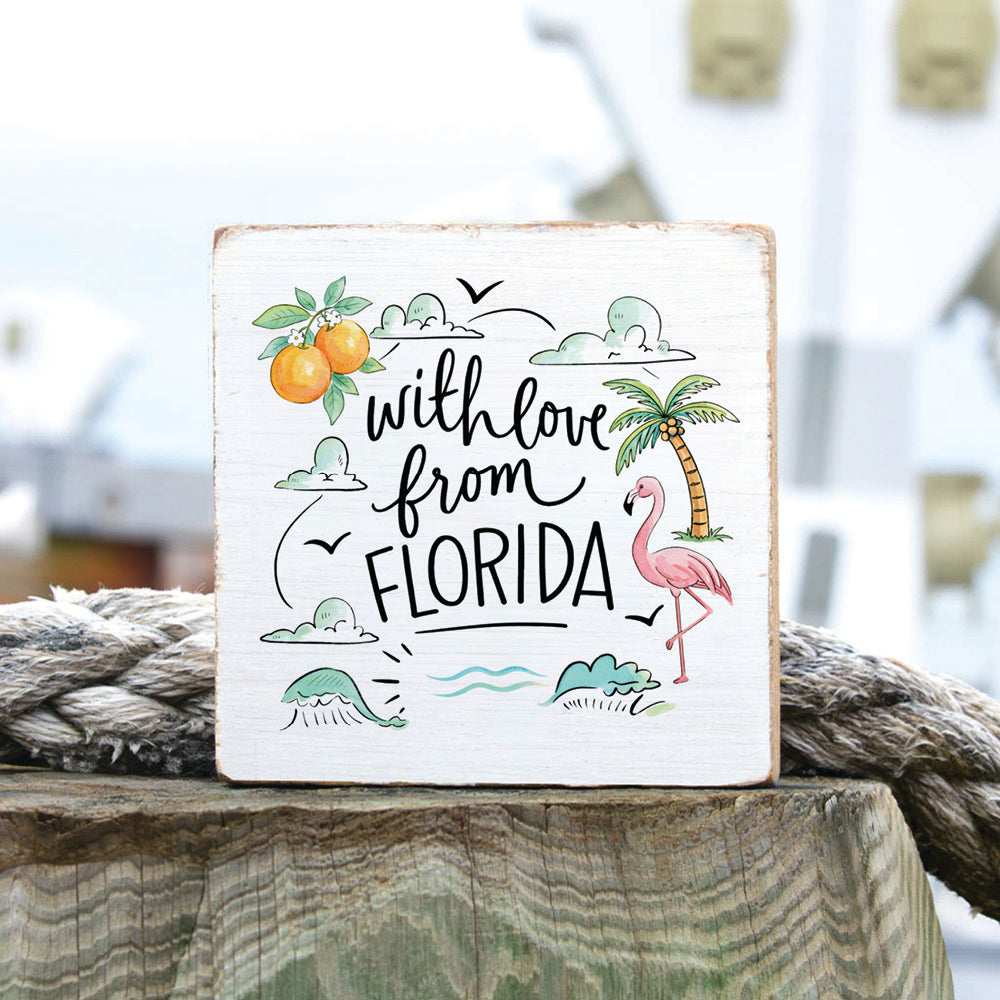 with love
from
FLORIDA